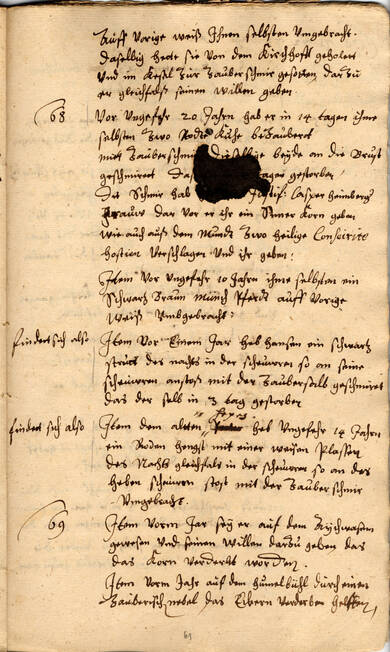 Auff Vorige weiß Ihnen selbsten Umgebracht.
Daselbig hette sie Von dem Kirchhoff geholett
Und in Kessel zur Zauberschmir gesotten, darzu
er gleichfalß seinen willen geben.
68 Vor Ungefehr 20 Jahren hab er in 14 tagen ihme
selbsten Zwo Rodte Kühe bezaubert
mitt Zauberschmir dieselbige beyde an die Brust
geschmirett gestorben
Die Schmir hab Justif: Casper
Frauw dar Vor er ihr ein Simer Korn geben
wie auch auß dem Mundt Zwo heilige Consecrirte
hostien Verschlagen Und ihr geben.
Item Vor Ungefehr 10 Jahren ihme selbsten ein
Schwartz Braun Münch Pferdt auff Vorige
Weiß Umbgebracht.
findert sich also Item Vor Einem Jar hab hansen ein schwartz
des nachts in der scheuwren so an seine
scheuwren anstost mit der Zaubersalb geschmirett
das der selb in 3 tag gestorben
findert sich also Item dem alten hab Ungefehr 14 Jahren
ein Roden hengst mit einer weisen Plassen
des Nachts gleichfals in der scheuwren so an des
scheuwren stost mit der Zauberschmir
Umgebracht.
69 Item Vorm Jar sey er auf dem
gewesen und seinen willen darzu geben das
das Korn Verderbt worden.
Item Vorm Jahr auf dem durch einen
Zauberisch nebel das Verderben helffen,
69